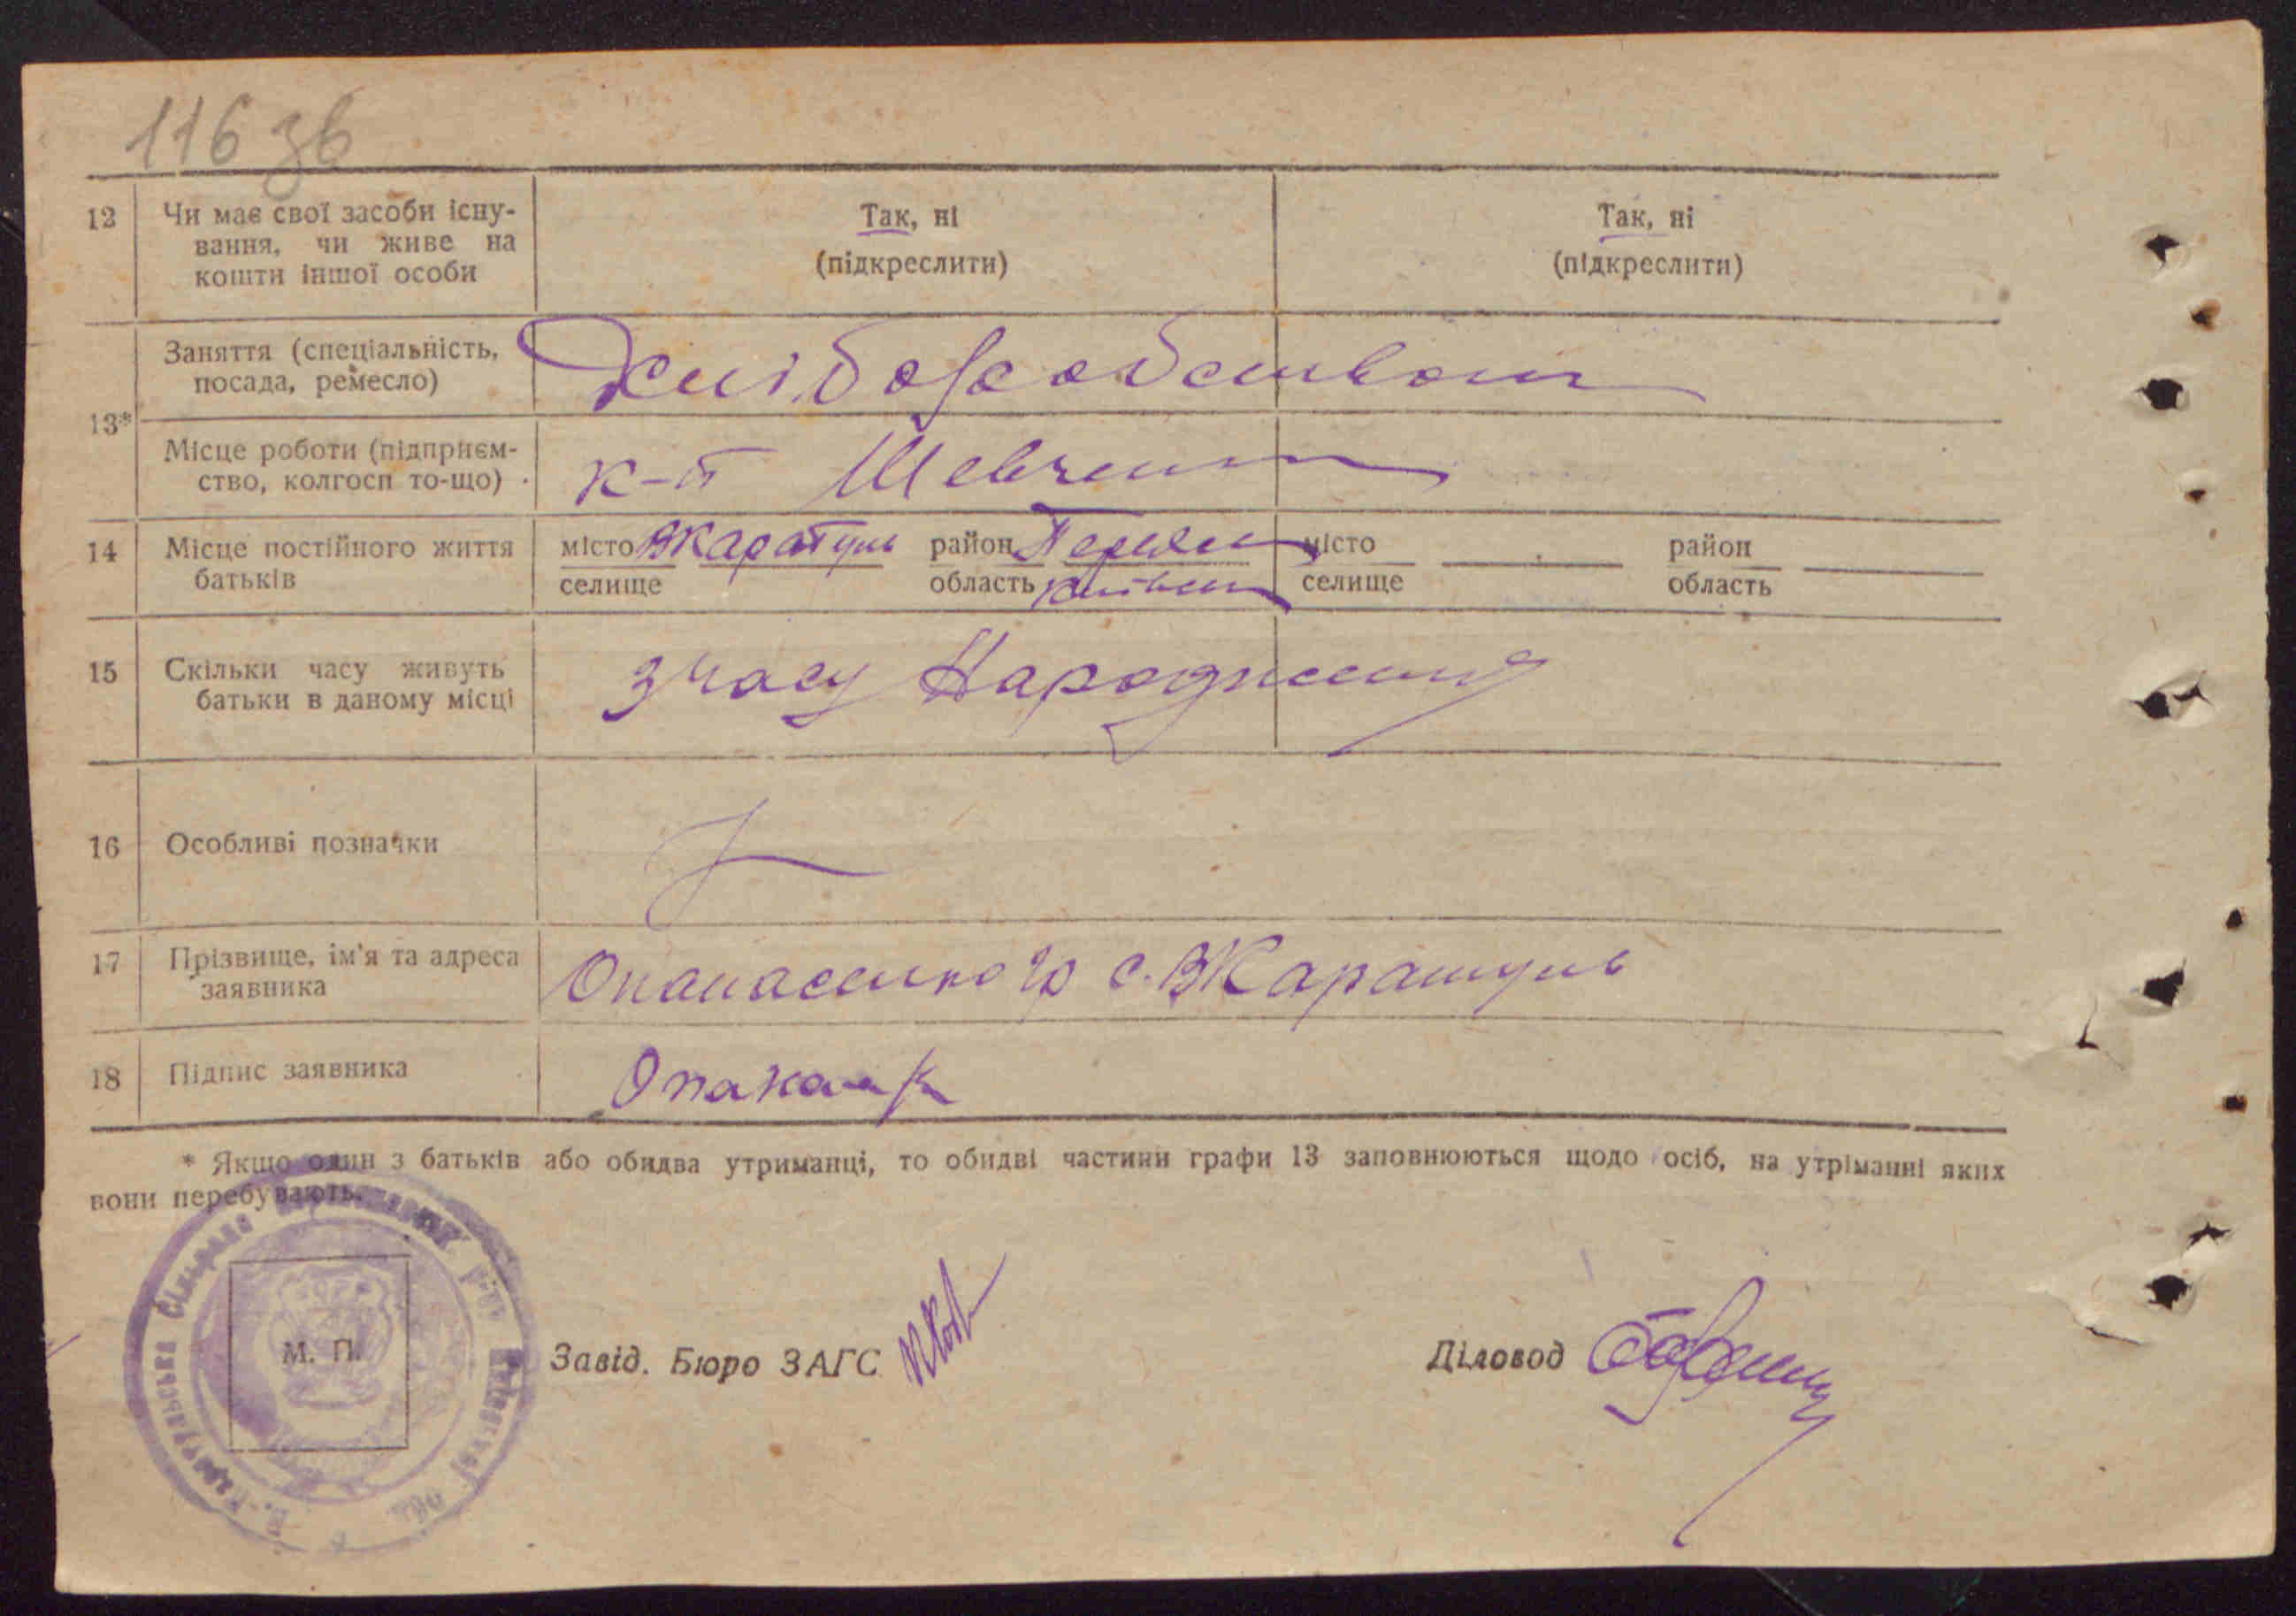 116 зв
12 Чи має свої засоби існу- Так, ні Так, ні
вання, чи живе на
кошти іншої особи (підкреслити) (підкреслити)
Заняття (спеціальність,
посада, ремесло)
13*
Місце роботи (підприєм- к-п Шевченк
ство, колгосп то-що)
14 Місце постійного життя місто ВКаратуль район місто район
батьків селище область селище область
15 Скільки часу живуть з часу Народження
батьки в даному місці
16 Особливі позначки
17 Прізвище, ім'я та адреса Опанасенко с. ВКаратуль
заявника
18 Підпис заявника
* Якщо один з батьків або обидва утриманці, то обидві частини графи 13 заповнюються щодо осіб, на утріманні яких
вони перебувають.
М. П.
Завід. Бюро ЗАГС Діловод